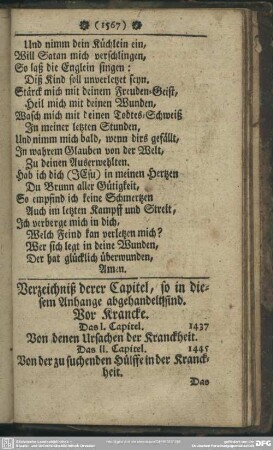 (1567)
Und nimm dein Küchlein ein,
Will Satan mich verschlingen,
So laß die Englein singen:
Diß Kind soll unverletzet seyn.
Stärck mich mit deinem Freuden-Geist,
Heil mich mit deinen Wunden,
Wasch mich mit deinen Todtes-Schweiß
In meiner letzten Stunden,
Und nimm mich bald, wenn dirs gefällt,
In wahrem Glauben von der Welt,
Zu deinen Auserwehlten.
Hab ich dich (JEsu) in meinen Hertzen
Du Brunn aller Gütigkeit,
So empfind ich keine Schmertzen
Auch im letzten Kampff und Streit,
Ich verberge mich in dich,
Welch Feind kan verletzen mich?
Wer sich legt in deine Wunden,
Der hat glücklich überwunden,
Amen.
Verzeichniß derer Capitel, so in die-
sem Anhange abgehandelt sind.
Vor Krancke.
Das I. Capitel. 1437
Von denen Ursachen der Kranckheit.
Das II. Capitel. 1445
Von der zu suchenden Hülffe in der Kranck-
heit.
Das